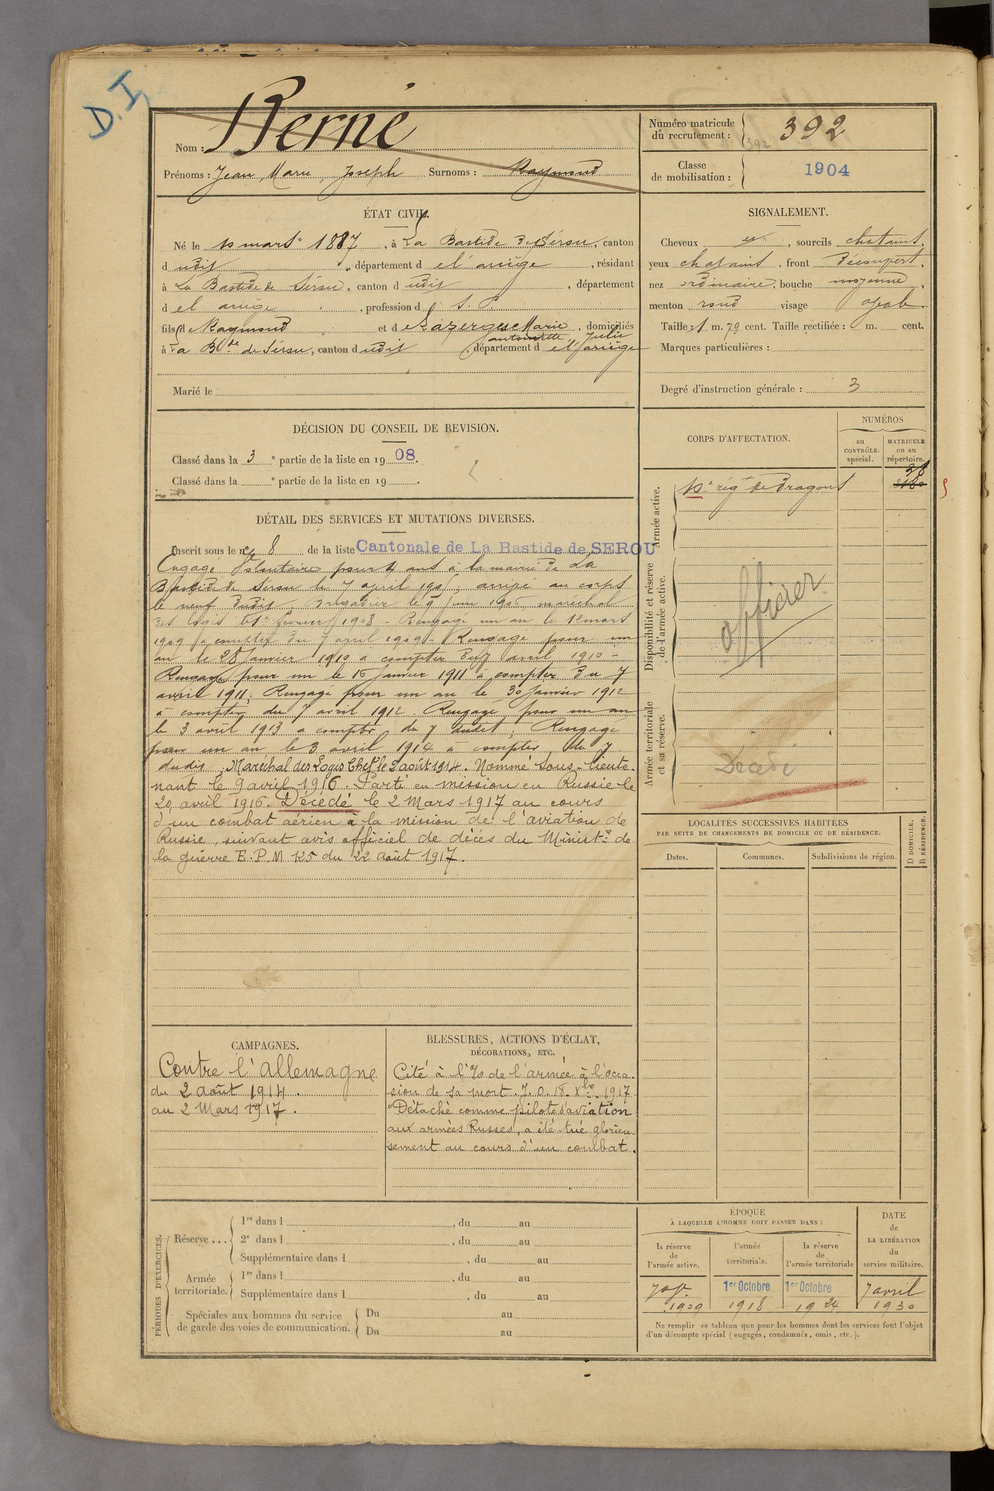 D.I.
Nom : Berné
Prénoms : Jean, Marie, Joseph Surnoms : Raymond
Numéro matricule du recrutement : 392 392
Classe de mobilisation : 1904
ÉTAT CIVIL.
Né le 10 mars 1887, à La Bastide de Sérou, canton
d udit, département d e l'ariège, résidant
à La Bastide de Sérou, canton d udit, département
d e l ariège, profession d s. p.
fils de Raymond et de Lazergues Marie, domiciliés
antoinette, Julie
à La Bde de Sérou, canton d udit, département d e l'ariège
Marié le
SIGNALEMENT.
Cheveux et, sourcils chatains,
yeux chatains, front découvert,
nez ordinaire, bouche moyenne,
menton rond visage ovale
Taille : 1 m. 79 cent. Taille rectifiée : m. cent.
Marques particulières :
Degré d'instruction générale : 3
DÉCISION DU CONSEIL DE REVISION.
Classé dans la 3e partie de la liste en 1908.
Classé dans la e partie de la liste en 19 .
DÉTAIL DES SERVICES ET MUTATIONS DIVERSES.
Inscrit sous le n° 8 de la liste Cantonale de La Bastide de SEROU
Engagé Volontaire pour 4 ans à la mairie de La
Bastide de Sérou le 7 avril 1905, arrivé au corps
le neuf dudit. Brigadier le 9 juin 1906, maréchal
des logis le février 1908. Rengagé un an le mars
1909 à compter du 7 avril 1909. Rengagé pour un
an le 28 janvier 1910 à compter du 7 avril 1910 -
Rengagé pour un le 15 janvier 1911 à compter du 7
avril 1911. Rengagé pour un an le 30 janvier 1912
à compter du 7 avril 1912. Rengagé pour un an
le 3 avril 1913 à compter du 7 dudit ; Rengagé
pour un an le 3 avril 1914 à compter du 7
dudit ; Maréchal des Logis Chef le 2 août 1914. Nommé sous-lieute-
nant le 9 avril 1916. Parti en mission en Russie le
29 avril 1916. Décédé le 2 Mars 1917 au cours
d'un combat aérien à la mission de l'aviation de
Russie, suivant avis officiel de décés du Ministre de
la guerre E.P.M 125 du 22 août 1917.
CORPS D'AFFECTATION.
NUMÉROS
au CONTRÔLE spécial.
MATRICULE ou au répertoire.
Armée active.
10e régt de Dragons
Disponibilité et réserve de l'armée active.
Officier
Armée territoriale et sa réserve.
Décédé
LOCALITÉS SUCCESSIVES HABITÉES
PAR SUITE DE CHANGEMENTS DE DOMICILE OU DE RÉSIDENCE.
Dates. Communes. Subdivisions de région.
D DOMICILE.
R RÉSIDENCE.
CAMPAGNES.
Contre l'allemagne
du 2 août 1914.
au 2 Mars 1917.
BLESSURES, ACTIONS D'ÉCLAT,
DÉCORATIONS, ETC.
Cité à l'% de l'armée à l'occa-
sion de sa mort. J.O. 18. Xbre. 1917
"Détaché comme pilote d'aviation
aux armées Russes, a été tué glorieu-
sement au cours d'un combat.
PÉRIODES D'EXERCICES.
Réserve . . . 1re dans l , du au
2e dans l , du au
Supplémentaire dans l , du au
Armée territoriale. 1re dans l , du au
Supplémentaire dans l , du au
Spéciales aux hommes du service de garde des voies de communication. Du au
Du au
ÉPOQUE
À LAQUELLE L'HOMME DOIT PASSER DANS :
la réserve de l'armée active.
l'armée territoriale.
la réserve de l'armée territoriale
DATE de LA LIBÉRATION du service militaire.
1909
1er Octobre 1918
1er Octobre 1924
7 avril 1930
Ne remplir ce tableau que pour les hommes dont les services font l'objet
d'un décompte spécial (engagés, condamnés, omis, etc.).